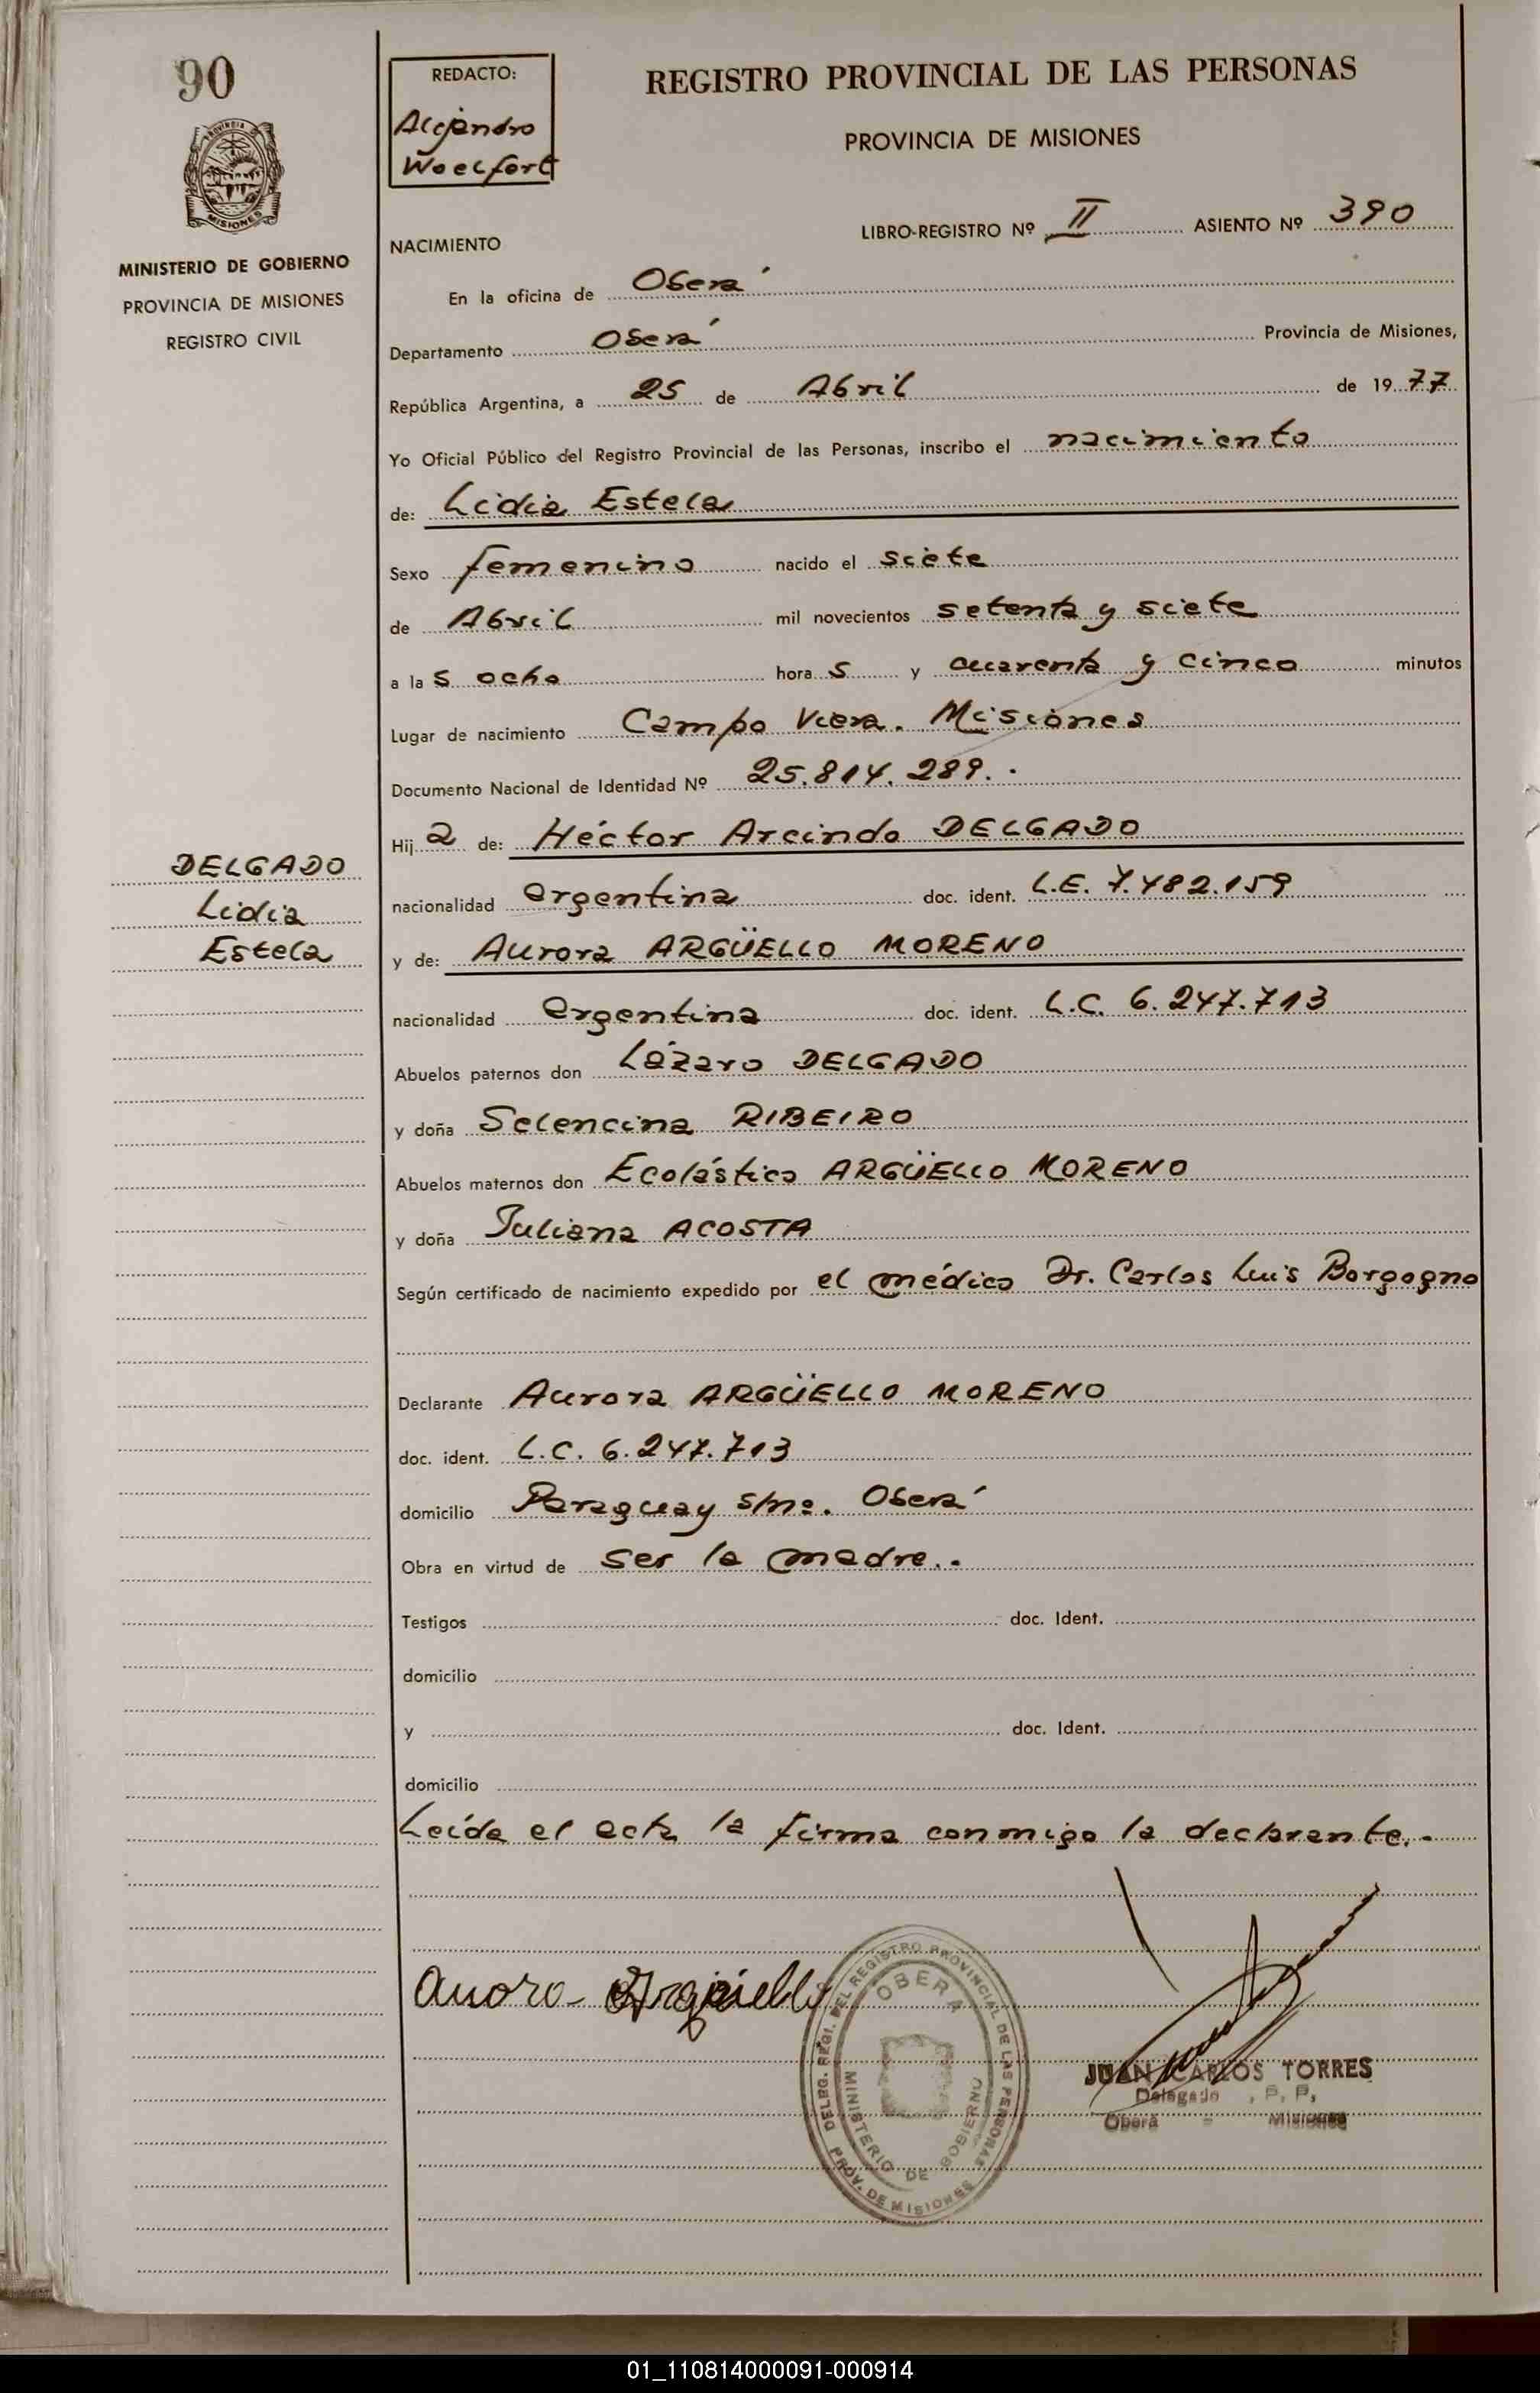 90
PROVINCIA DE
MISIONES
MINISTERIO DE GOBIERNO
PROVINCIA DE MISIONES
REGISTRO CIVIL
REDACTO:
Alejandro
Woelfert
REGISTRO PROVINCIAL DE LAS PERSONAS
PROVINCIA DE MISIONES
LIBRO-REGISTRO Nº II ASIENTO Nº 390
NACIMIENTO
En la oficina de Oberá
Departamento Oberá Provincia de Misiones,
República Argentina, a 25 de Abril de 1977
Yo Oficial Público del Registro Provincial de las Personas, inscribo el nacimiento
de: Lidia Estela
Sexo femenino nacido el siete
de Abril mil novecientos setenta y siete
a las ocho horas y cuarenta y cinco minutos
Lugar de nacimiento Campo Viera. Misiones
Documento Nacional de Identidad Nº 25.814.289.
Hija de: Héctor Arcindo DELGADO
DELGADO
Lidia
Estela
nacionalidad argentina doc. ident. L.E. 7.482.159
y de: Aurora ARGÜELLO MORENO
nacionalidad argentina doc. ident. L.C. 6.247.713
Abuelos paternos don Lázaro DELGADO
y doña Selencina RIBEIRO
Abuelos maternos don Ecolástico ARGÜELLO MORENO
y doña Juliana ACOSTA
Según certificado de nacimiento expedido por el médico Dr. Carlos Luis Borgogno
Declarante Aurora ARGÜELLO MORENO
doc. ident. L.C. 6.247.713
domicilio Paraguay s/nº. Oberá
Obra en virtud de ser la madre..
Testigos doc. Ident.
domicilio
y doc. Ident.
domicilio
Leída el acta la firma conmigo la declarante.-
Auoro- Argüello
DELEG. REGI. DEL REGISTRO PROVINCIAL DE LAS PERSONAS
OBERA
MINISTERIO DE GOBIERNO
PROV. DE MISIONES
JUAN CARLOS TORRES
Delegado , P. P,
Oberá - Misiones
01_110814000091-000914